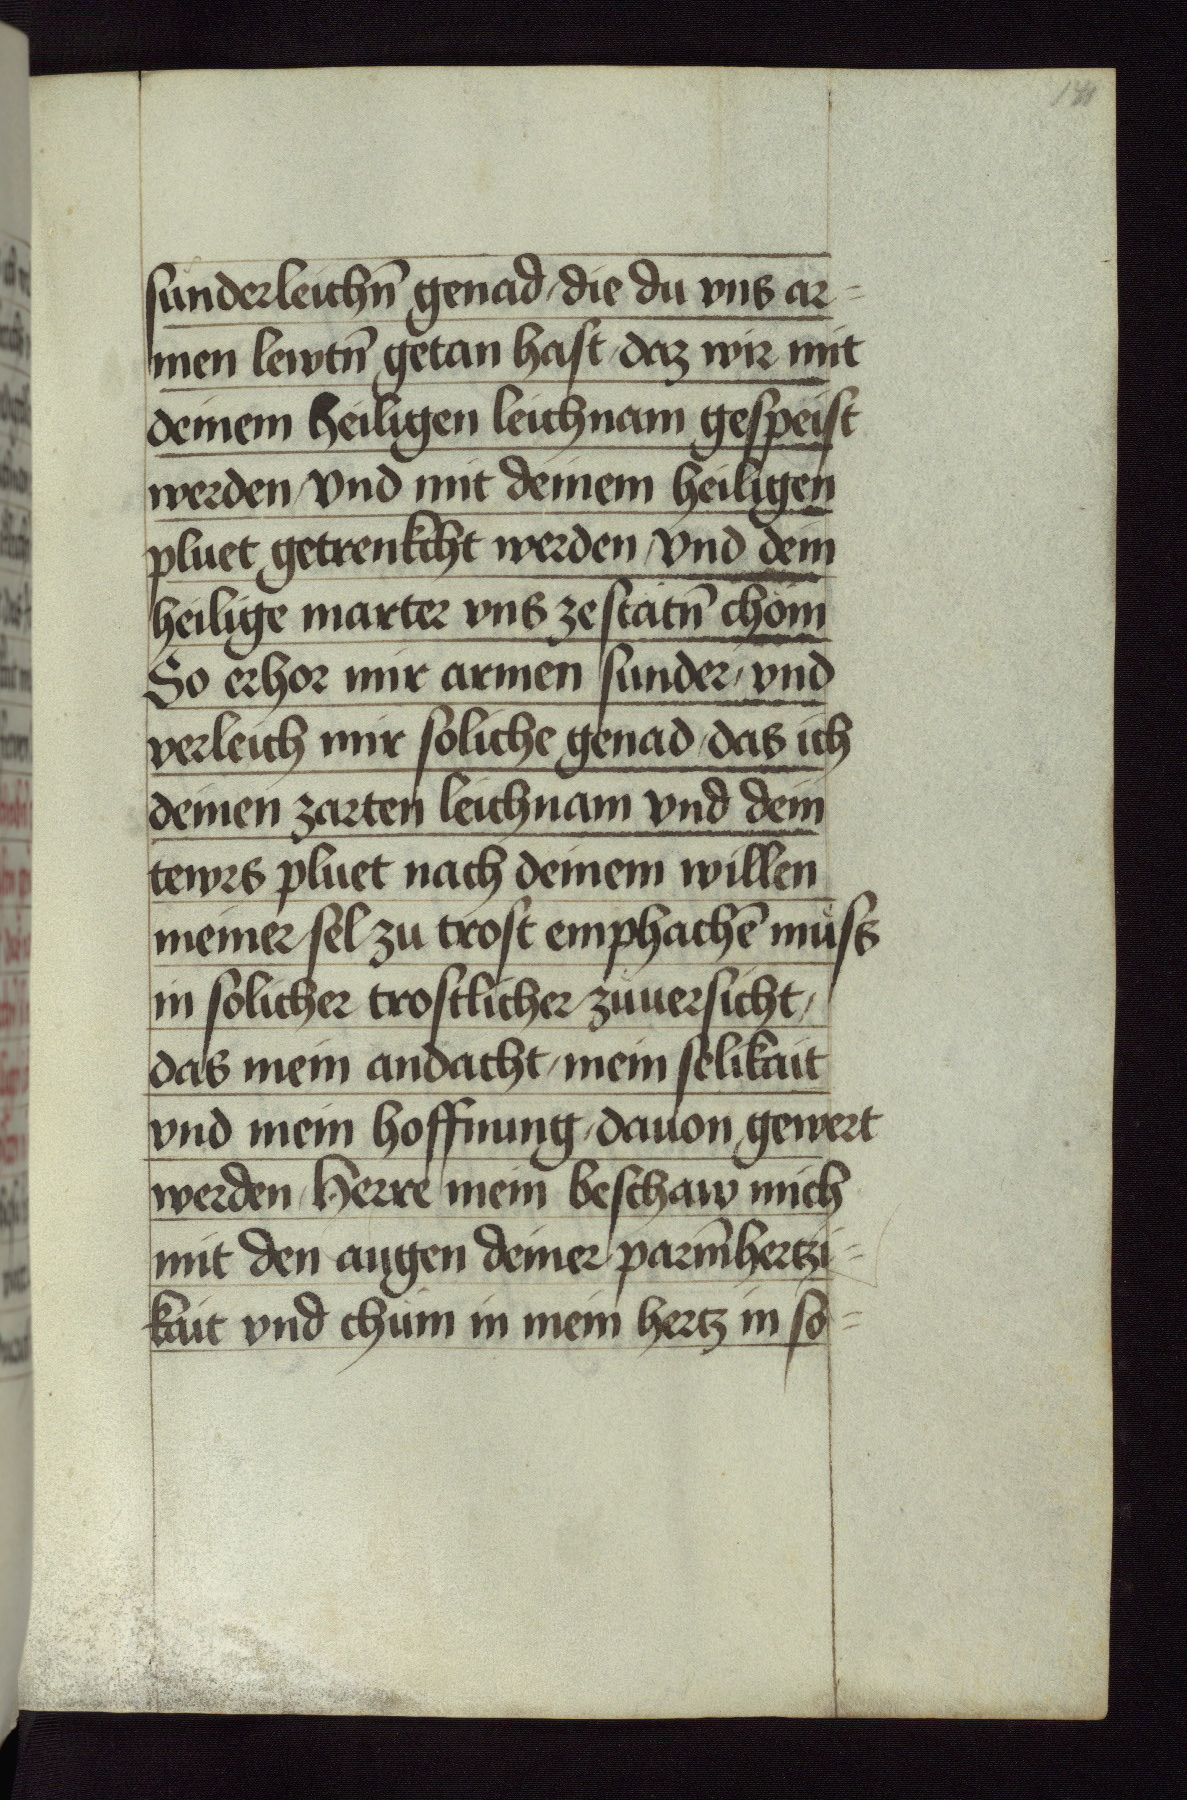 sunderleichn̄ genad / die du vns ar=
men lewtn̄ getan hast / daz wir mit
deinem heiligen leichnam gespeist
werden / vnd mit deinem heiligen
pluet getrenkcht werden / vnd dein
heilige marter vns ze statn̄ chöm
So erhor mir armen sunder / vnd
verleich mir soliche genad / das ich
deinen zarten leichnam vnd dein
tewrs pluet nach deinem willen
meiner sel zu trost emphachē müss
in solicher trostlicher züuersicht /
das mein andacht / mein selikait
vnd mein hoffnung / dauon gewert
werden / Herre mein beschaw mich
mit den augen deiner parm̄hertzi=
kait vnd chüm in mein hertz in so=